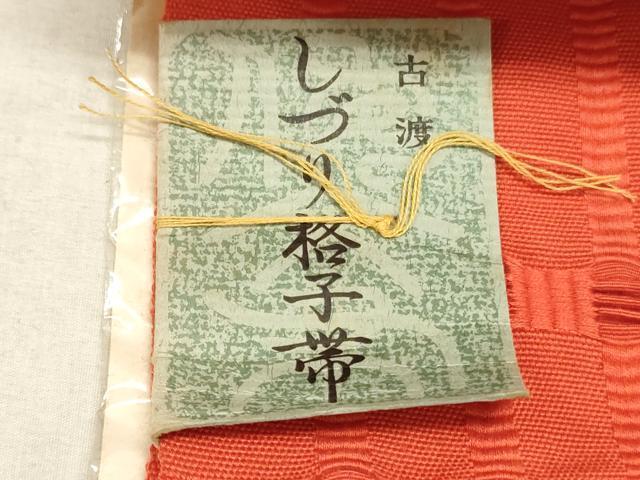 古渡
しづり格子帯